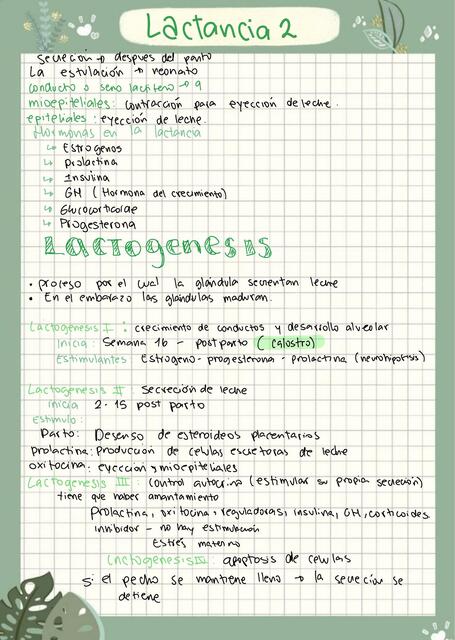 Lactancia 2
Secreción → despues del parto
La estulación → neonato
conducto o seno lactifero → 9
mioepiteliales: contracción para eyección de leche.
epiteliales: eyección de leche.
Hormonas en la lactancia
↳ Estrogenos
↳ Prolactina
↳ Insulina
↳ GH (Hormona del crecimiento)
↳ Glucocorticoide
↳ Progesterona
Lactogenesis
• proceso por el cual la glándula secretan leche
• En el embarazo las glandulas maduran.
Lactogenesis I : crecimiento de conductos y desarrollo alveolar
Inicia: Semana 16 - postparto (calostro)
Estimulantes Estrogeno - progesterona - prolactina (neurohipofisis)
Lactogenesis II : Secreción de leche
inicia 2-15 post parto
Estimulo:
Parto: Desenso de esteroideos placentarios
prolactina: Producción de celulas excretoras de leche
oxitocina: eyección y mioepiteliales
Lactogenesis III : control autocrino (estimular su propia secreción)
tiene que haber amantamiento
Prolactina, oxitocina, reguladoras, insulina, GH, corticoides
inhibidor - no hay estimulación
Estrés materno
Lactogenesis IV : apoptosis de celulas
Si el pecho se mantiene lleno → la secreción se
detiene